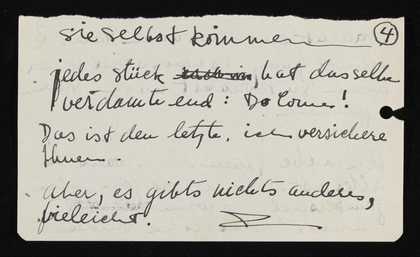 sie selbst kommen ④
jedes stück hat dasselbe
verdamte end: Do Come!
Das ist den letzte, ich versichere
Ihnen.
Aber, es gibts nichts anderes,
vieleicht.